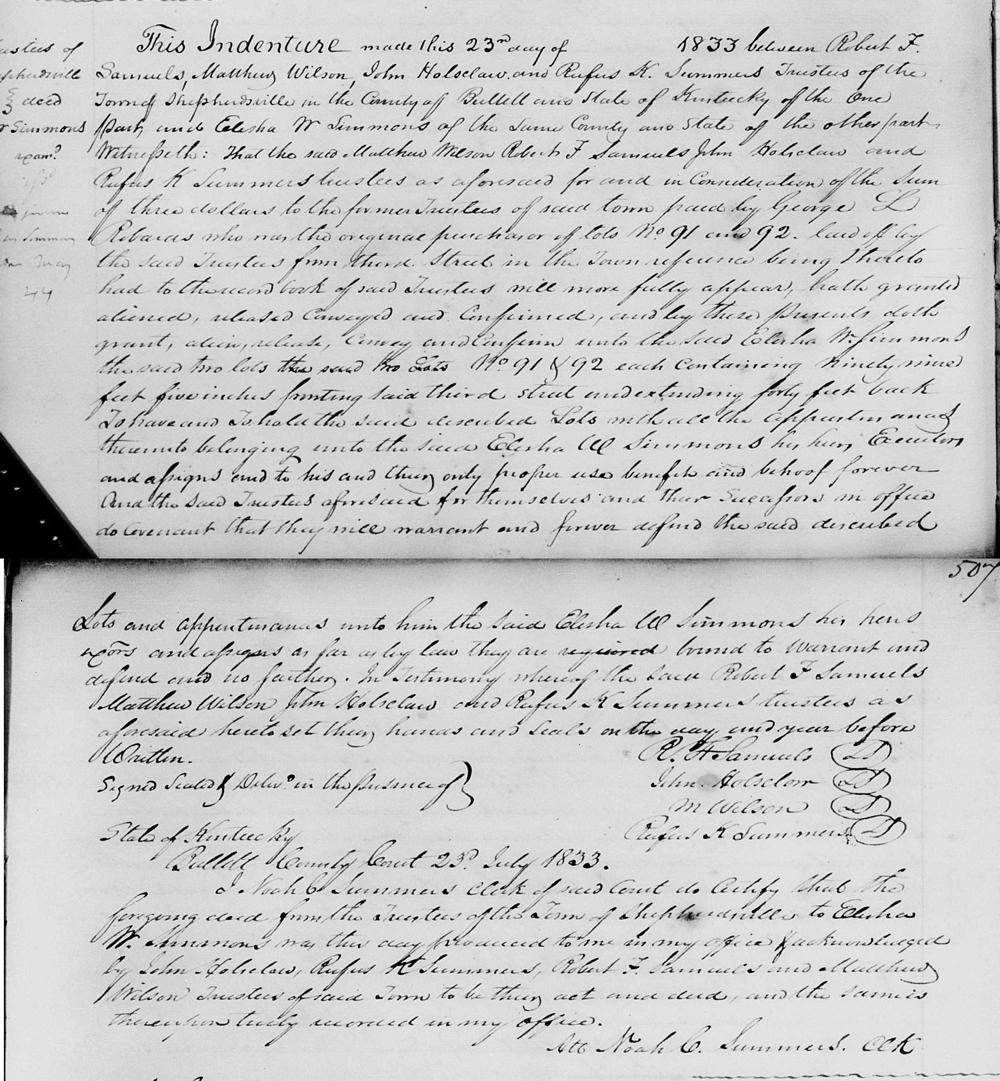 This Indenture made this 23rd day of 1833 between Robert F.
Samuels, Matthew Wilson, John Holsclaw and Rufus K. Summers Trustees of the
Town of Shepherdsville in the County of Bullitt and State of Kentucky of the One
part and Elesha W Simmons of the Same County and State of the other part
Witnesseth: That the said Matthew Wilson Robert F Samuels John Holsclaw and
Rufus K Summers trustees as aforesaid for and in Consideration of the Sum
of three dollars to the former Trustees of said town paid by George L
Robards who was the original purchaser of lots No 91 and 92. laid off by
the said Trustees from third Street in the Town reference being thereto
had to the record book of said Trustees will more fully appear, hath granted
aliened, released Conveyed and Confirmed, and by these Presents doth
grant, alien, release, Convey and Confirm unto the said Elesha W. Simmons
the said two lots the said two Lots No 91 & 92 each Containing Ninety nine
feet five inches fronting said third street and extending forty feet back
To have and To hold the said described Lots with all the appurtenances
thereunto belonging unto the said Elesha W Simmons his heirs Executors
and assigns and to his and their only proper use benefit and behoof forever
And the said Trustees aforesaid for themselves and their Successors in office
do Covenant that they will warrant and forever defend the said described
Trustees of
Shepherdsville
deed
Simmons
exam?
May
44
507
Lots and appurtenances unto him the said Elesha W Simmons his heirs
exors and assigns as far as by law they are required bound to Warrant and
defend and no farther. In Testimony whereof the said Robert F Samuels
Matthew Wilson John Holsclaw and Rufus K Summers trustees as
aforesaid hereto set their hands and Seals on the day and year before
Written.
Signed Sealed & Delivd in the presence of
R. F Samuels
John Holsclow
M Wilson
Rufus K Summers
State of Kentucky
Bullitt County Court 23d July 1833.
I Noah C Summers Clerk of said Court do Certify that the
foregoing deed from the Trustees of the Town of Shepherdsville to Elesha
W. Simmons was this day produced to me in my office & acknowledged
by John Holsclaw, Rufus K Summers, Robert F. Samuels and Matthew
Wilson Trustees of said Town to be their act and deed, and the same is
thereupon truly recorded in my office.
Att Noah C. Summers. Clk